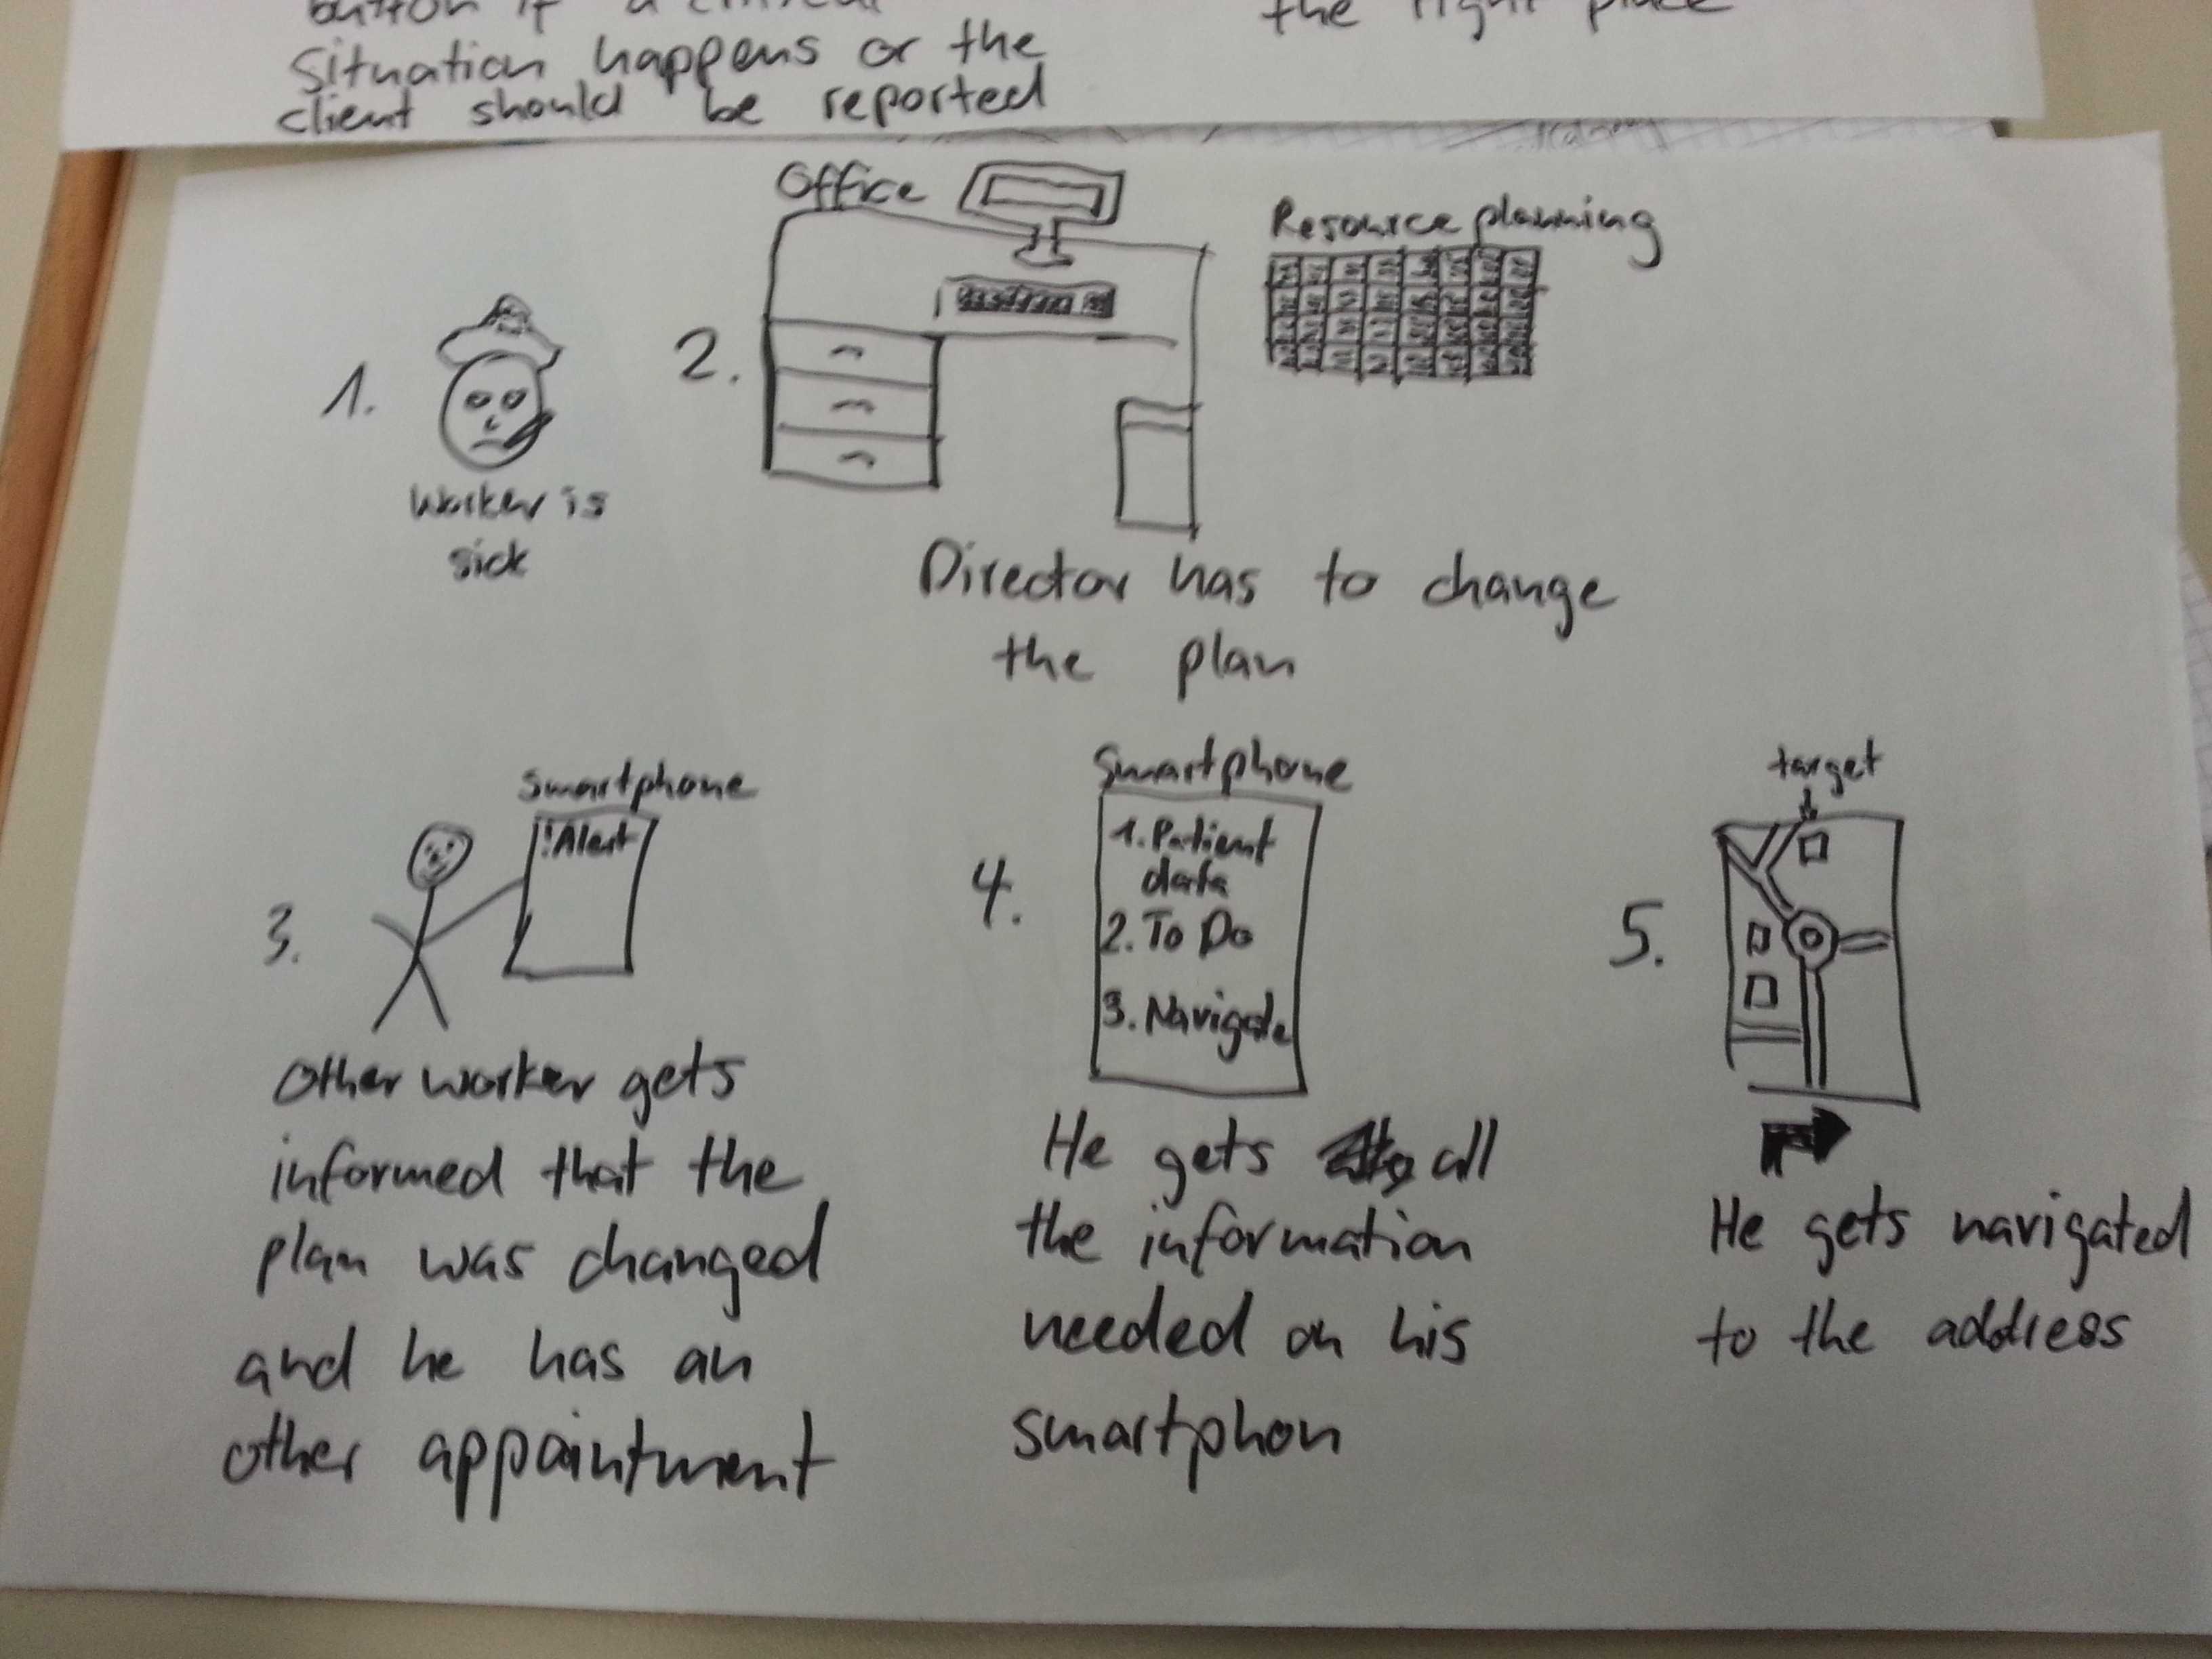 button if a critical
the right place
Situation happens or the
client should be reported
Office
Resource planning
1.
2.
Worker is
sick
Director has to change
the plan
Smartphone
!Alert
3.
Other worker gets
informed that the
plan was changed
and he has an
other appointment
Smartphone
4.
1. Patient
data
2. To Do
3. Navigate
He gets all
the information
needed on his
smartphon
target
5.
He gets navigated
to the address